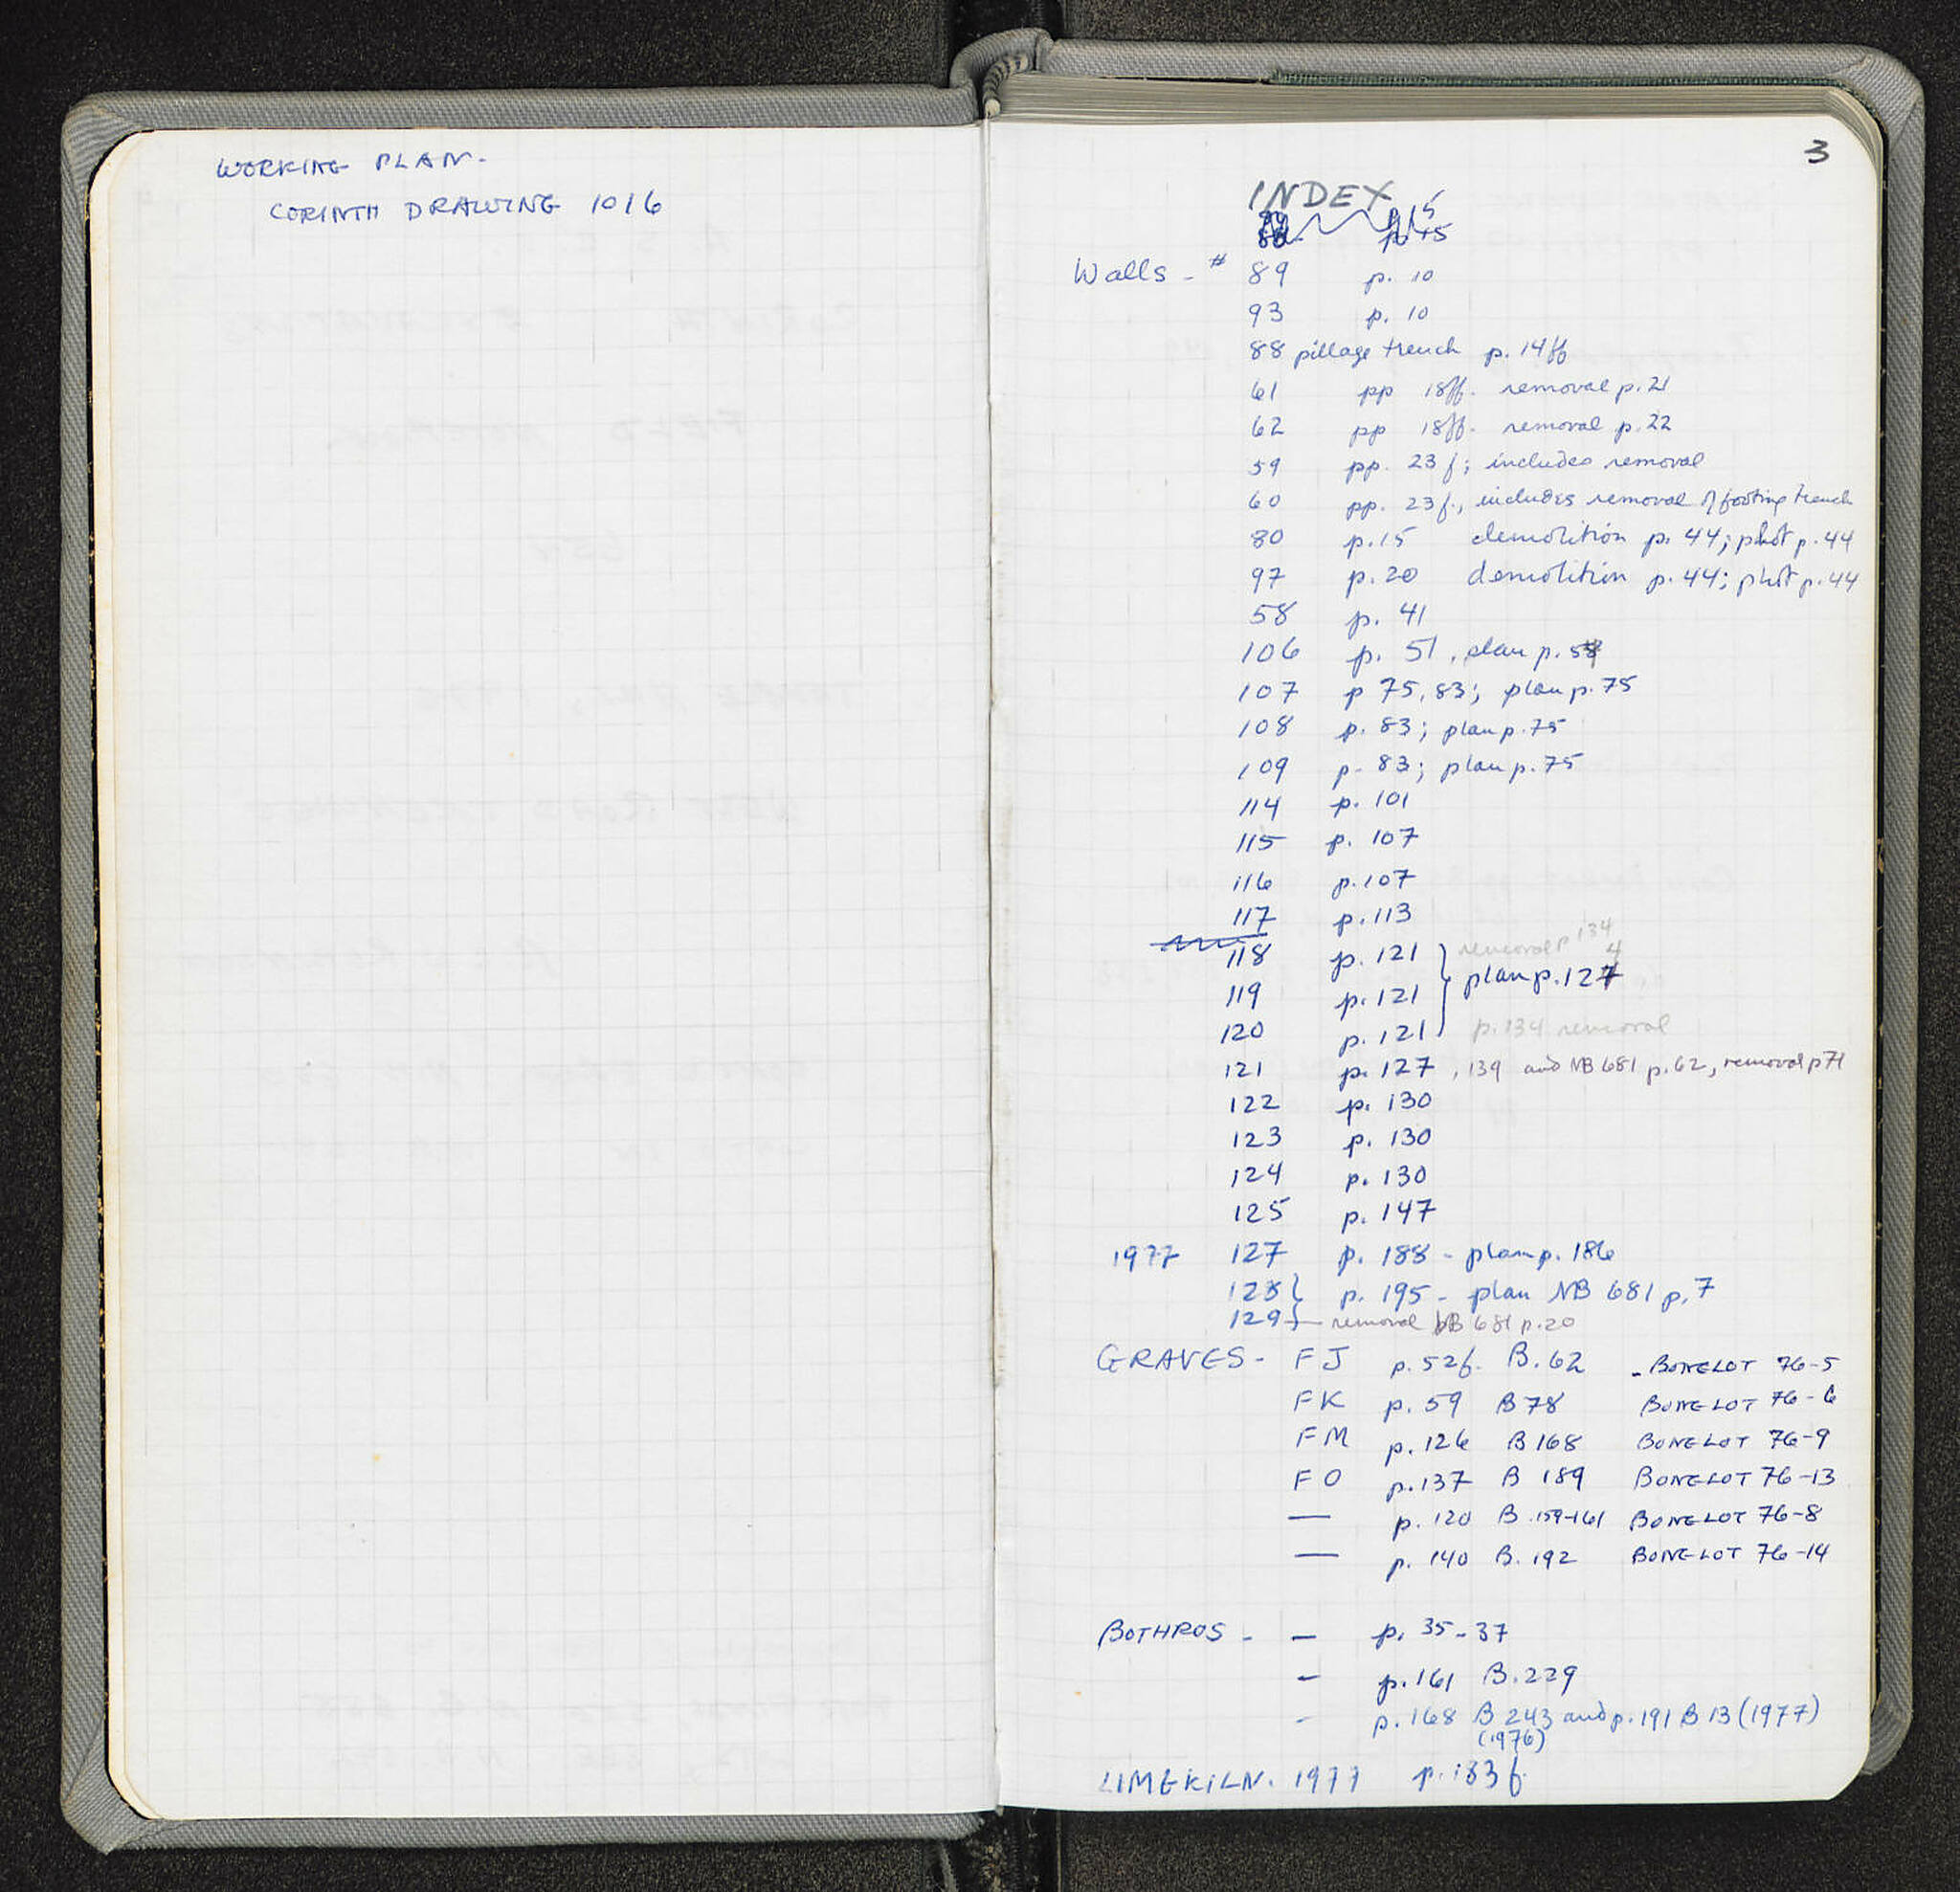 WORKING PLAN-
CORINTH DRAWING 1016
3
INDEX
p. 15
Walls - # 89 p. 10
93 p. 10
88 pillage trench p. 14ff
61 pp 18ff. removal p. 21
62 pp 18ff. removal p. 22
59 pp. 23f; includes removal
60 pp. 23f., includes removal of footing trench
80 p. 15 demolition p. 44; phot p. 44
97 p. 20 demolition p. 44; phot p. 44
58 p. 41
106 p. 51, plan p.
107 p 75, 83; plan p. 75
108 p. 83; plan p. 75
109 p. 83; plan p. 75
114 p. 101
115 p. 107
116 p. 107
117 p. 113
118 p. 121 removal p 134
119 p. 121 plan p. 124
120 p. 121 p. 134 removal
121 p. 127, 139 and NB 681 p. 62, removal p 71
122 p. 130
123 p. 130
124 p. 130
125 p. 147
1977 127 p. 188 - plan p. 186
128 p. 195 - plan NB 681 p. 7
129 removal NB 681 p. 20
GRAVES - FJ p. 52f. B. 62 - BONELOT 76-5
FK p. 59 B 78 BONELOT 76-6
FM p. 126 B 168 BONELOT 76-9
FO p. 137 B 189 BONELOT 76-13
— p. 120 B. 159-161 BONELOT 76-8
— p. 140 B. 192 BONELOT 76-14
BOTHROS - — p. 35-37
— p. 161 B. 229
- p. 168 B 243 and p. 191 B 13 (1977)
(1976)
LIMEKILN. 1977 p. 183 f.